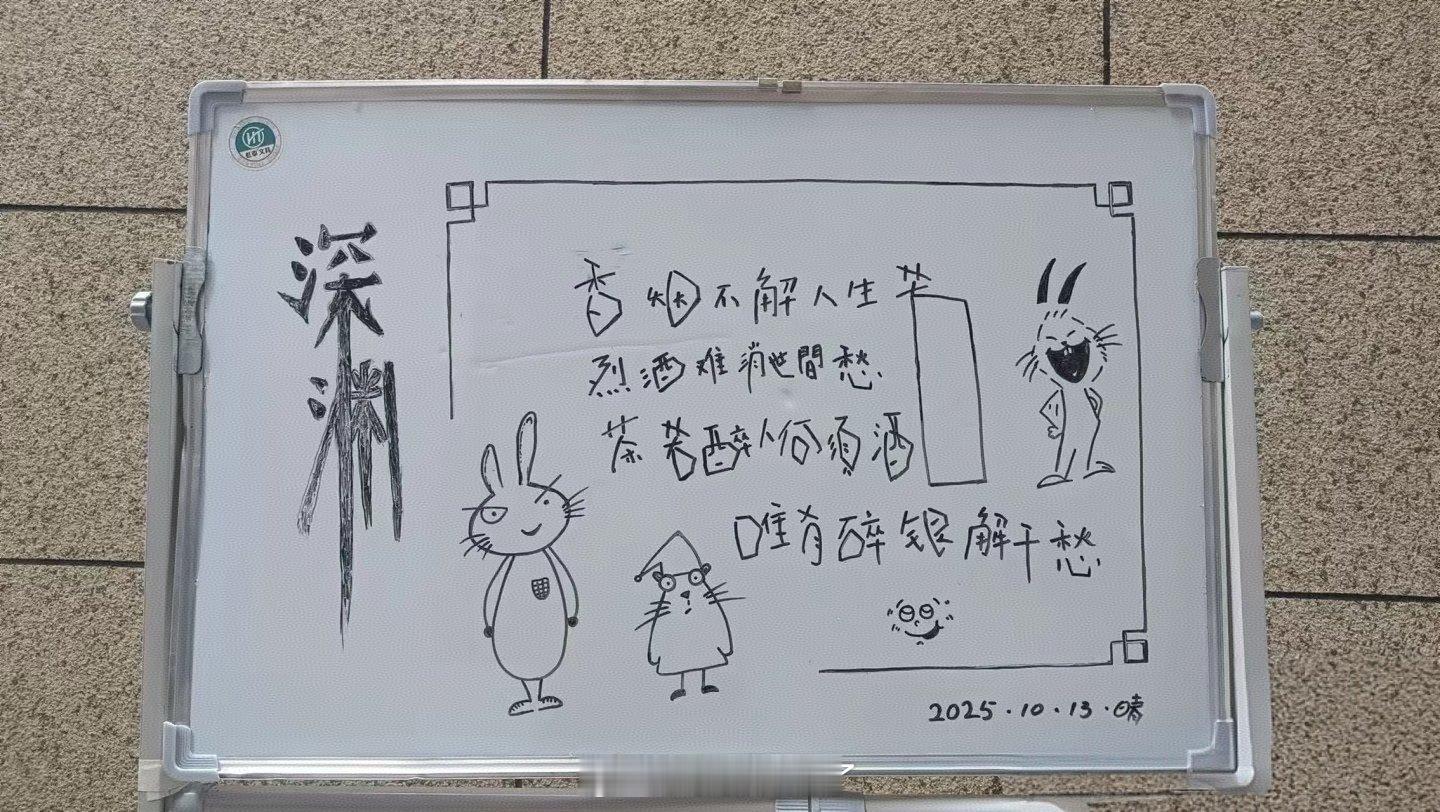 深渊
香烟不解人生苦
烈酒难消世間愁
茶若醉人何须酒
唯有碎银解千愁
2025.10.13.晴